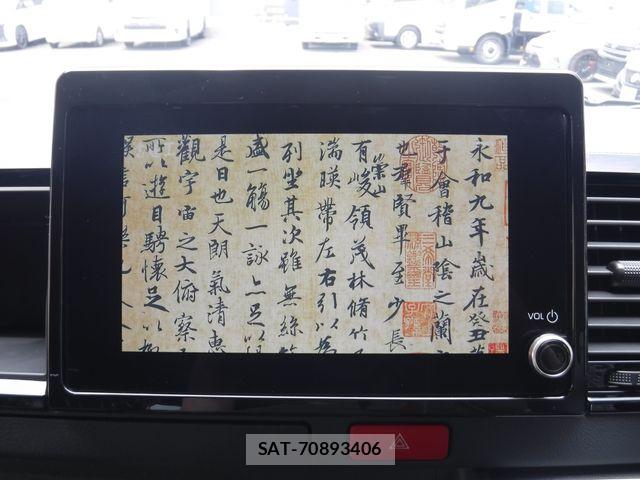 永和九年歲在癸丑
于會稽山陰之蘭
也羣賢畢至少長
有崇山峻領茂林脩竹
湍暎帶左右引以為
列坐其次雖無絲
盛一觴一詠亦足以
是日也天朗氣清惠
觀宇宙之大俯察
所以遊目騁懷足以
娛信可樂也
VOL
SAT-70893406